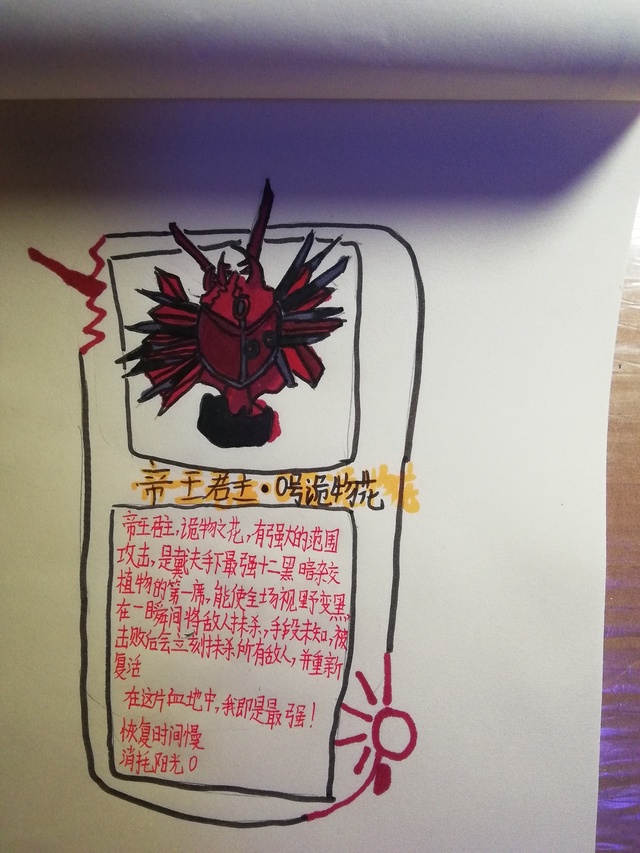 帝王君主·0号诡物花
帝王君主,诡物之花,有强大的范围
攻击,是戴夫手下最强十二黑暗杂交
植物的第一席,能使全场视野变黑
在一瞬间将敌人抹杀,手段未知,被
击败后会立刻抹杀所有敌人,并重新
复活
在这片血地中,我即是最强!
恢复时间慢
消耗阳光0